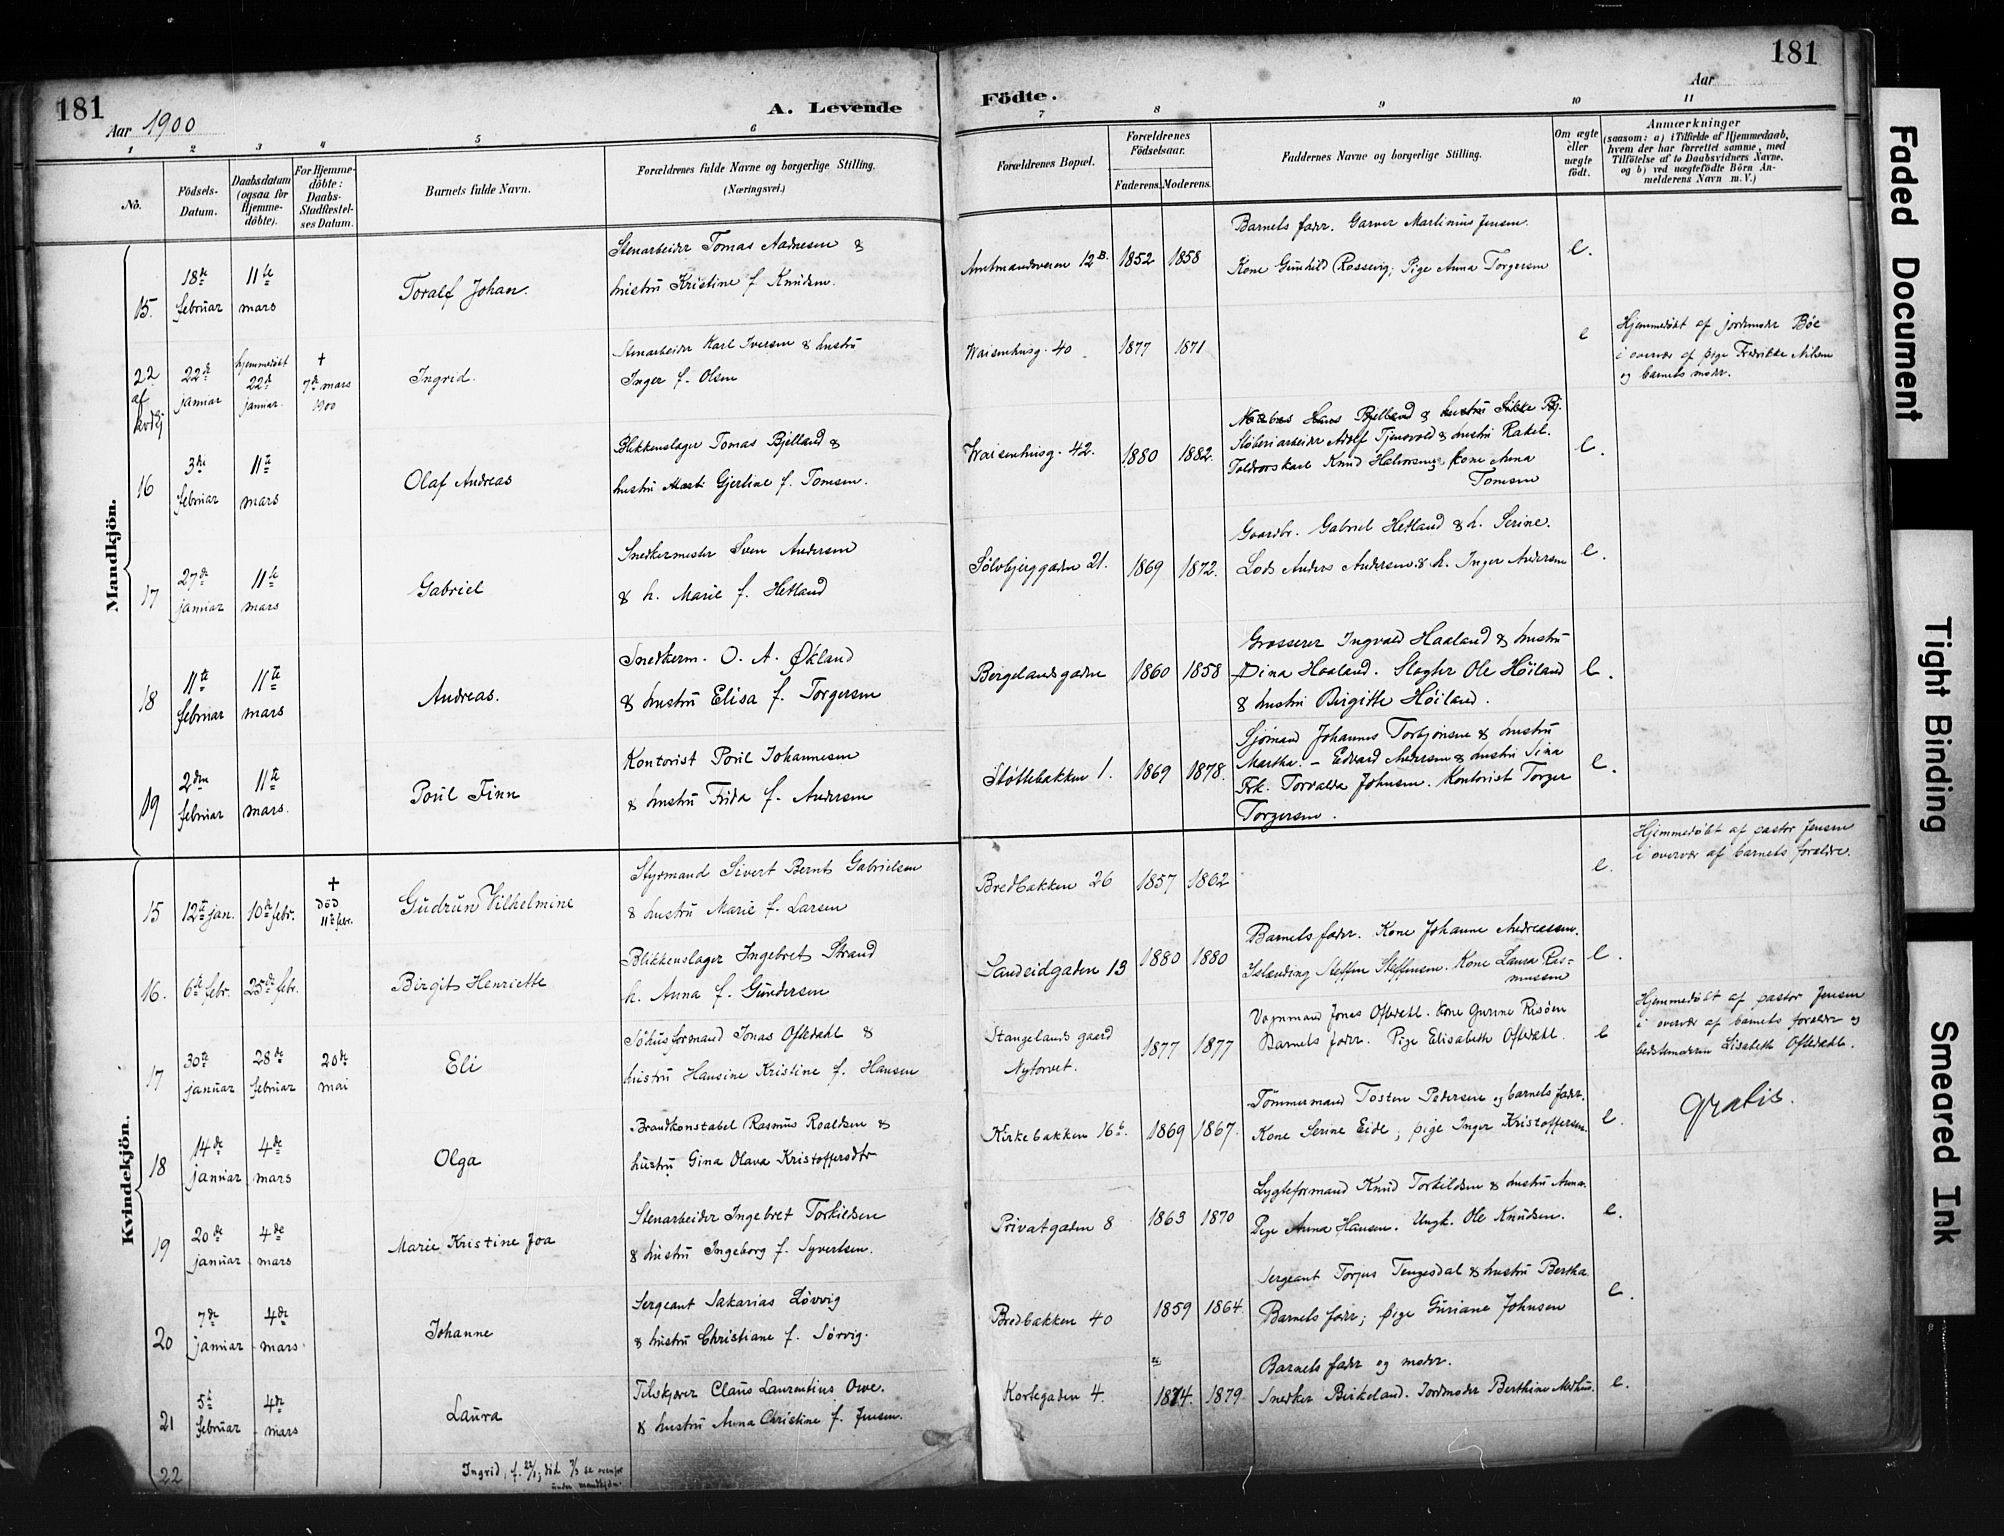 181
Aar 1900
A. Levende Födte.
Aar
181
1 2 3 4 5 6 7 8 9 10 11
No.
Födsels-
Datum.
Daabsdatum
(ogsaa for
Hjemme-
döbte).
For Hjemme-
döbte:
Daabs-
Stadfæstel-
ses Datum.
Barnets fulde Navn.
Forældrenes fulde Navne og borgerlige Stilling.
(Næringsvei.)
Forældrenes Bopæl.
Forældrenes
Födselsaar.
Faderens. Moderens.
Faddernes Navne og borgerlige Stilling.
Om ægte
eller
uægte
födt.
Anmærkninger
(saasom: a) i Tilfælde af Hjemmedaab,
hvem der har forrettet samme, med
Tilföielse af to Daabsvidners Navne,
og b) ved uægtefödte Börn An-
melderens Navn m. V.)
Mandkjön.
15. 18de februar 11te mars
Toralf Johan.
Stenarbeider Tomas Aadnesen &
hustru Kristine f. Knudsen.
Amtmandsveien 12 B. 1852 1858
Barnets fader. Garver Martinius Jensen.
Kone Gunhild Rossevig; Pige Anna Torgersen
e.
22 af kvdkj 22de januar hjemmedøbt 22de januar. † 7de mars 1900
Ingrid.
Stenarbeider Karl Iversen & hustru
Inger f. Olsen
Waisenhusg. 40 1877 1871
e
Hjemmedøbt af jordemoder Bøe
i overvær af pige Fredrikke Nilsen
og barnets moder.
16 3de februar 11te mars
Olaf Andreas
Blikkenslager Tomas Bjelland &
hustru Marti Gjertine f. Tomsen.
Waisenhusg. 42. 1880 1882.
Hans Bjelland & hustru Sikke Bj.
Støberiarbeider Adolf Tjensvold & hustru Rakel.
Toldvorskarl Knud Halvorsen; kone Anna
Tomsen
e.
17 27de januar 11te mars
Gabriel
Snedkermester Sven Andersen
& h. Marie f. Hetland
Sølvbjerggaden 21. 1869 1872.
Gaardbr. Gabriel Hetland & h. Serine.
Lods Anders Andersen & h. Inger Andersen
e.
18 11te februar 11te mars
Andreas.
Snedkerm. O. A. Økland
& hustru Elisa f. Torgersen
Bergelandsgaden 1860 1858
Grosserer Ingvald Haaland & hustru
Dina Haaland. Slagter Ole Høiland
& hustru Birgitte Høiland.
e.
19 2den februar 11te mars.
Poul Finn
Kontorist Poul Johannesen
& hustru Frida f. Andersen
Støttebakken 1. 1869 1878.
Sjømand Johannes Torbjørnsen & hustru
Martha. – Edvard Andersen & hustru Sina
Frk. Torvalda Johnsen. Kontorist Torger
Torgersen.
e.
Kvindekjön.
15 12te jan. 10de febr. † død 11te febr.
Gudrun Vilhelmine
Styrmand Sivert Bernt Gabrielsen
& hustru Marie f. Larsen
Bredbakken 26 1857 1862
e.
Hjemmedøbt af pastor Jensen
i overvær af barnets forældre.
16. 6te febr. 25de febr.
Birgit Henriette
Blikkenslager Ingebret Strand
h. Anna f. Gundersen
Sandeidgaden 13 1880 1880
Barnets fader. Kone Johanne Andreassen.
Islænding Steffen Steffensen. Kone Laura Ras-
mussen
e.
17 30te januar 28de februar 20de mai
Eli
Söhusformand Jonas Oftedahl &
hustru Hansine Kristine f. Hansen
Stangelands gaard
Nytorvet.
1877 1877
Vognmand Jonas Oftedahl. Kone Gurine Risøen
Barnets fader. Pige Elisabeth Oftedahl.
e
Hjemmedøbt af pastor Jensen
i overvær af barnets forældre og
bedstemoderen Lisabeth Oftedahl.
18 14de januar 4de mars
Olga
Brandkonstabel Rasmus Roaldsen &
hustru Gina Olava Kristoffersdtr
Kirkebakken 16 b. 1869 1867.
Tömmermand Tosten Pedersen og barnets fader.
Kone Serine Eide; pige Inger Kristoffersen.
e.
gratis.
19 20de januar 4de mars
Marie Kristine Joa
Stenarbeider Ingebret Torkildsen
& hustru Ingeborg f. Syvertsen.
Privatgaden 8 1863 1870
Lygteformand Knud Torkildsen & hustru Anna.
Pige Anna Hansen. Ungk. Ole Knudsen.
e.
20 7de januar 4de mars
Johanne
Sergeant Sakarias Løvvig
& hustru Christiane f. Sørvig.
Bredbakken 40 1859 1864.
Sergeant Torjus Tengesdal & hustru Bertha.
Barnets fader; pige Guriane Johnsen
e.
21 5te februar 4de mars
Laura
Tilskjærer Claus Laurentius Owe.
& hustru Anna Christine f. Jensen.
Kortegaden 4. 1874. 1879.
Barnets fader og moder.
Snedker Birkeland. Jordmoder Berthine Medhus.
e.
22
Ingrid, f. 22/1, död 7/3 se ovenfor
under mandkjön.
Faded Document
Tight Binding
Smeared Ink